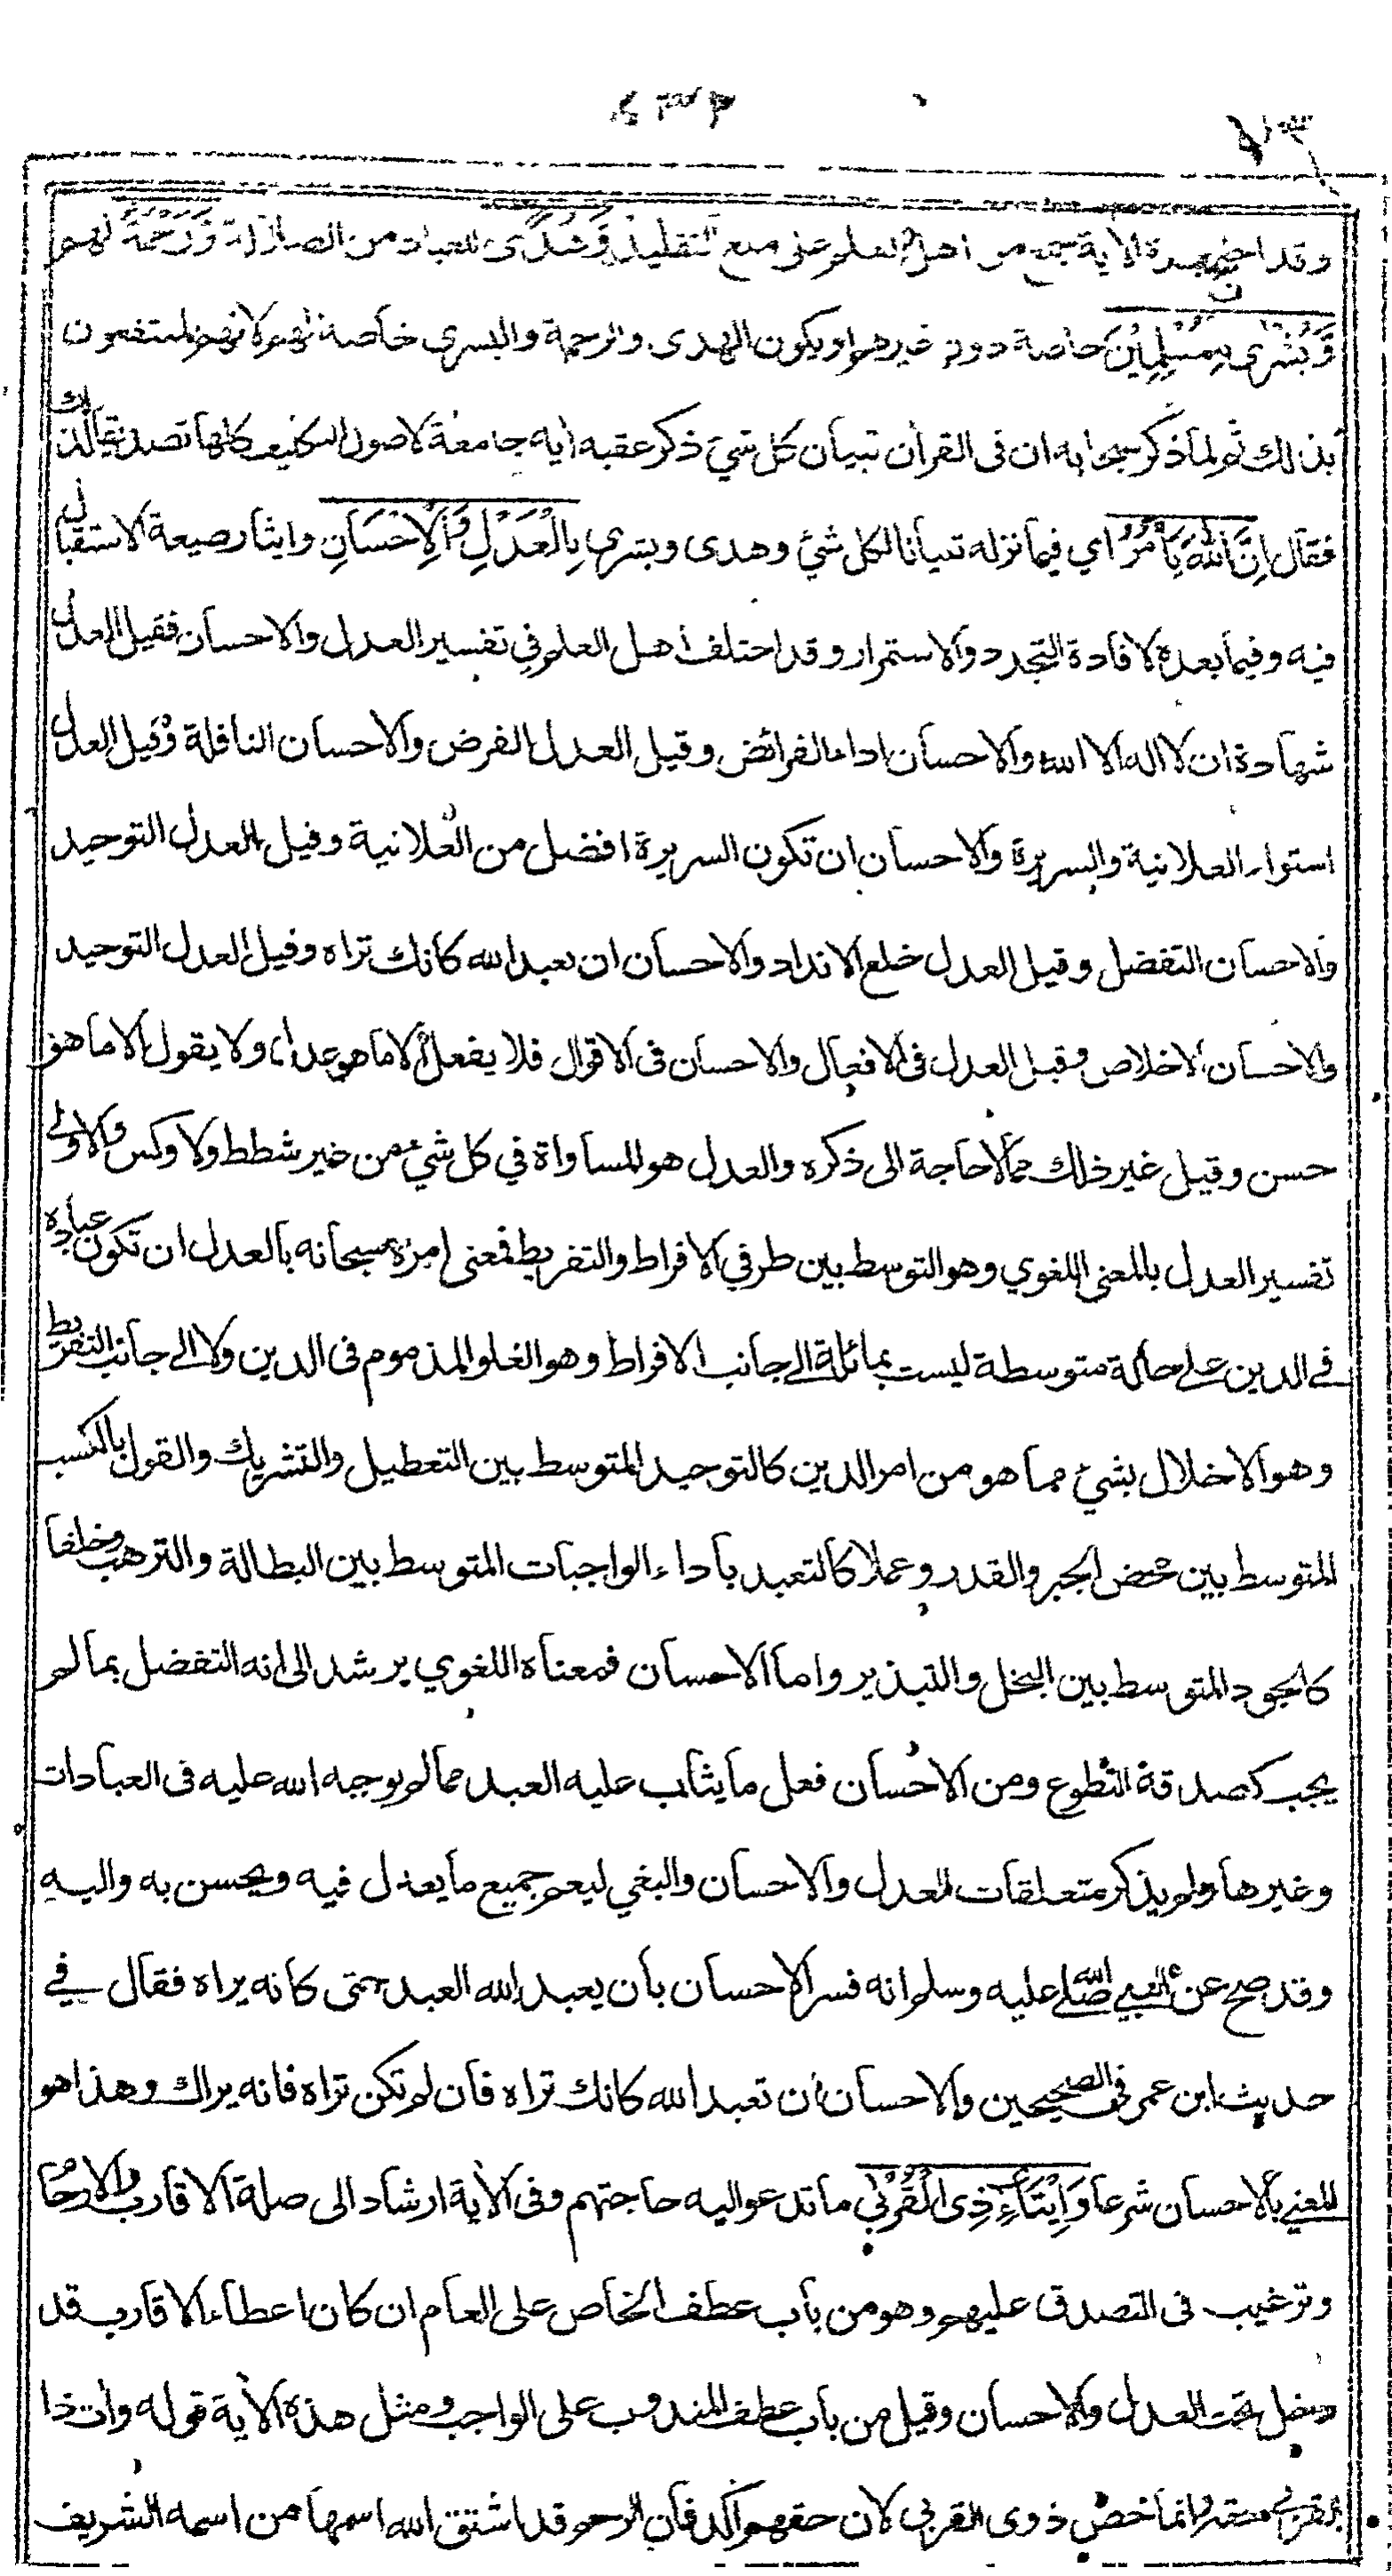 وقد احتج بهذه الاية جمع من اهل العلم على منع التقليد وَهُدًى للعباد من الضلالة وَّرَحْمَةً لهم
وَّبُشْرٰى لِلْمُسْلِمِيْنَ خاصة دون غيرهم او يكون الهدى والرحمة والبشرى خاصة بهم لانهم المنتفعون
بذلك ثم لما ذكر سبحانه ان فى القرأن تبيان كل شيء ذكر عقبه أية جامعة لاصول التكليف كلها تصديقا لذلك
فقال اِنَّ اللّٰهَ يَاْمُرُ اي فيما نزله تبيانا لكل شئ وهدى وبشرى بِالْعَدْلِ وَالْاِحْسَانِ وايثار صيغة الاستقبال
فيه وفيما بعده لافادة التجدد والاستمرار وقد اختلف اهل العلم في تفسير العدل والاحسان فقيل العدل
شهادة ان لا اله الا الله والاحسان اداء الفرائض وقيل العدل الفرض والاحسان النافلة وقيل العدل
استواء العلانية والسريرة والاحسان ان تكون السريرة افضل من العلانية وقيل العدل التوحيد
والاحسان التفضل وقيل العدل خلع الانداد والاحسان ان تعبد الله كانك تراه وقيل العدل التوحيد
والاحسان الاخلاص وقيل العدل فى الافعال والاحسان فى الاقوال فلا يفعل الا ما هو عدل ولا يقول الا ما هو
حسن وقيل غير ذلك مما لا حاجة الى ذكره والعدل هو المساواة في كل شيء من غير شطط ولا وكس والاولى
تفسير العدل بالمعنى اللغوي وهو التوسط بين طرفي الافراط والتفريط فمعنى امره سبحانه بالعدل ان تكون عباده
فى الدين على حالة متوسطة ليست بمائلة الى جانب الافراط وهو الغلو المذموم فى الدين ولا الى جانب التفريط
وهو الاخلال بشئ مما هو من امر الدين كالتوحيد المتوسط بين التعطيل والتشريك والقول بالكسب
المتوسط بين محض الجبر والقدر وعملا كالتعبد باداء الواجبات المتوسط بين البطالة والترهب وخلقا
كالجود المتوسط بين البخل والتبذير واما الاحسان فمعناه اللغوي يرشد الى انه التفضل بما لم
يجب كصدقة التطوع ومن الاحسان فعل ما يثاب عليه العبد مما لم يوجبه الله عليه فى العبادات
وغيرها ولم يذكر متعلقات العدل والاحسان والبغي ليعم جميع ما يعدل فيه ويحسن به واليه
وقد صح عن النبي صلى الله عليه وسلم انه فسر الاحسان بأن يعبد الله العبد حتى كانه يراه فقال في
حديث ابن عمر فى الصحيحين والاحسان ان تعبد الله كانك تراه فان لم تكن تراه فانه يراك وهذا هو
المعني بالاحسان شرعا وَاِيْتَآءِ ذِى الْقُرْبٰى ما تدعو اليه حاجتهم وفى الأية ارشاد الى صلة الاقارب والارحا
وترغيب فى التصدق عليهم وهو من باب عطف الخاص على العام ان كان اعطاء الاقارب قد
دخل تحت العدل والاحسان وقيل من باب عطف المندوب على الواجب ومثل هذه الأية قوله وأت ذا
القربى حقه وانما خص ذوى القربى لان حقهم أكد فان الرحم قد اشتق الله اسمها من اسمه الشريف